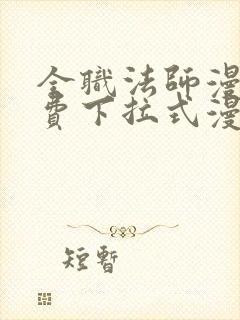 全職法師漫
費下拉式漫
短暫